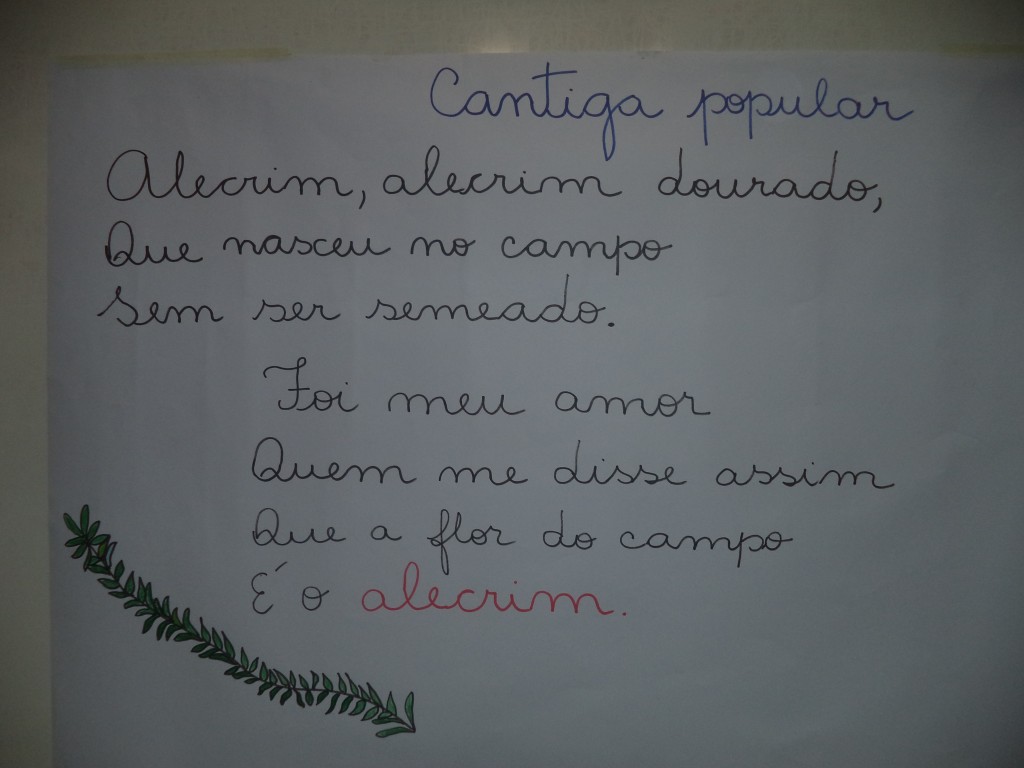 Cantiga popular
Alecrim, alecrim dourado,
Que nasceu no campo
Sem ser semeado.
Foi meu amor
Quem me disse assim
Que a flor do campo
É o alecrim.